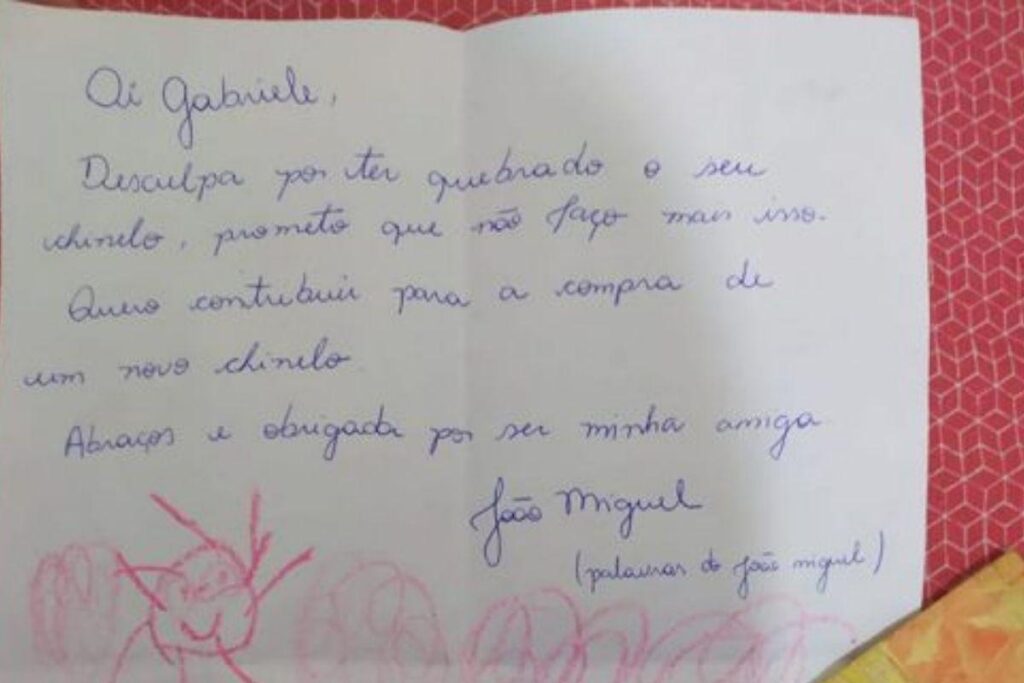 Oi Gabriele,
Desculpa por ter quebrado o seu
chinelo, prometo que não faço mais isso.
Quero contribuir para a compra de
um novo chinelo.
Abraços e obrigada por ser minha amiga.
João Miguel
(palavras do João miguel)